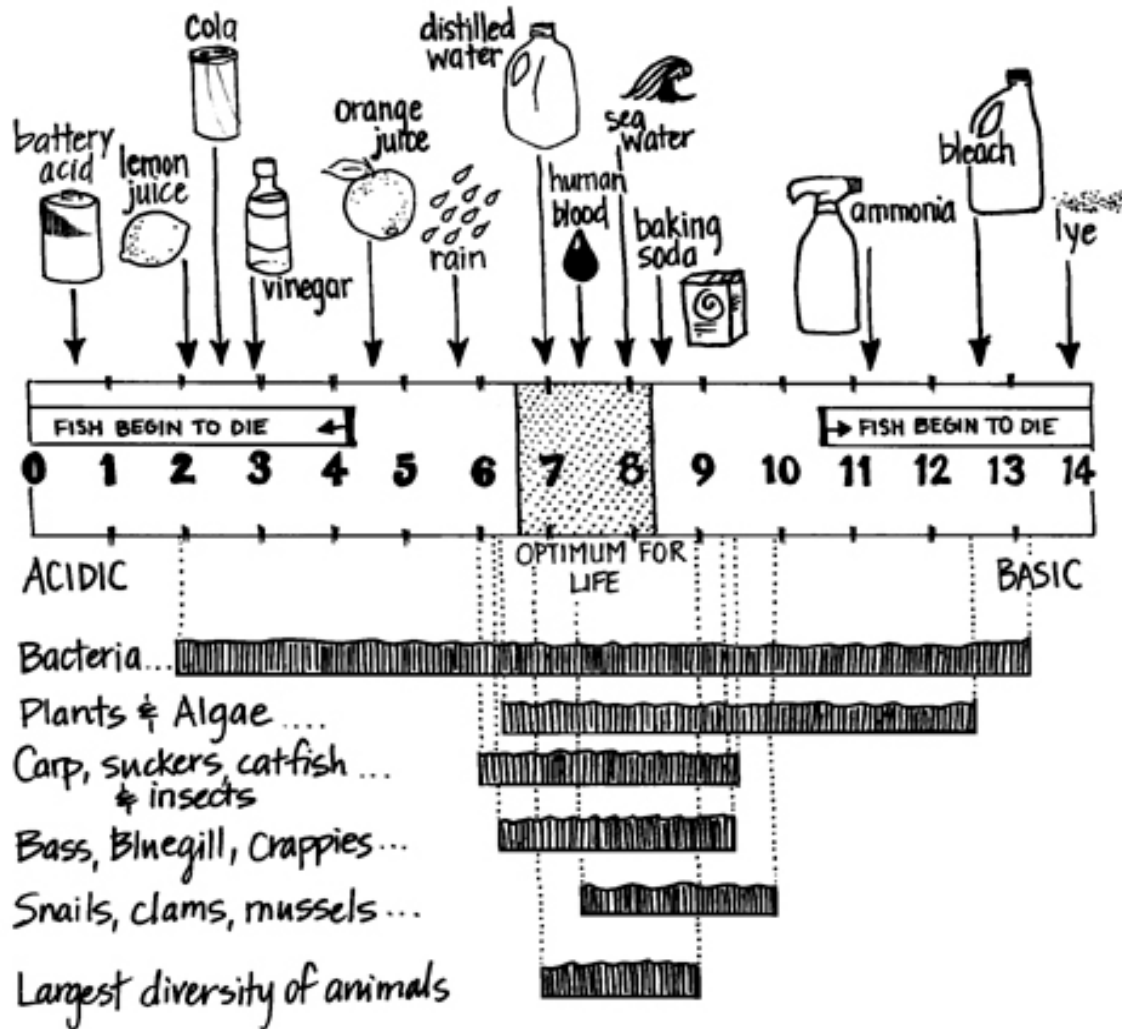 cola
distilled
water
battery
acid
lemon
juice
vinegar
orange
juice
rain
human
blood
sea
water
baking
soda
ammonia
bleach
lye
FISH BEGIN TO DIE
FISH BEGIN TO DIE
0 1 2 3 4 5 6 7 8 9 10 11 12 13 14
ACIDIC
OPTIMUM FOR
LIFE
BASIC
Bacteria...
Plants & Algae ....
Carp, suckers, catfish ...
& insects
Bass, Bluegill, Crappies ...
Snails, clams, mussels ...
Largest diversity of animals